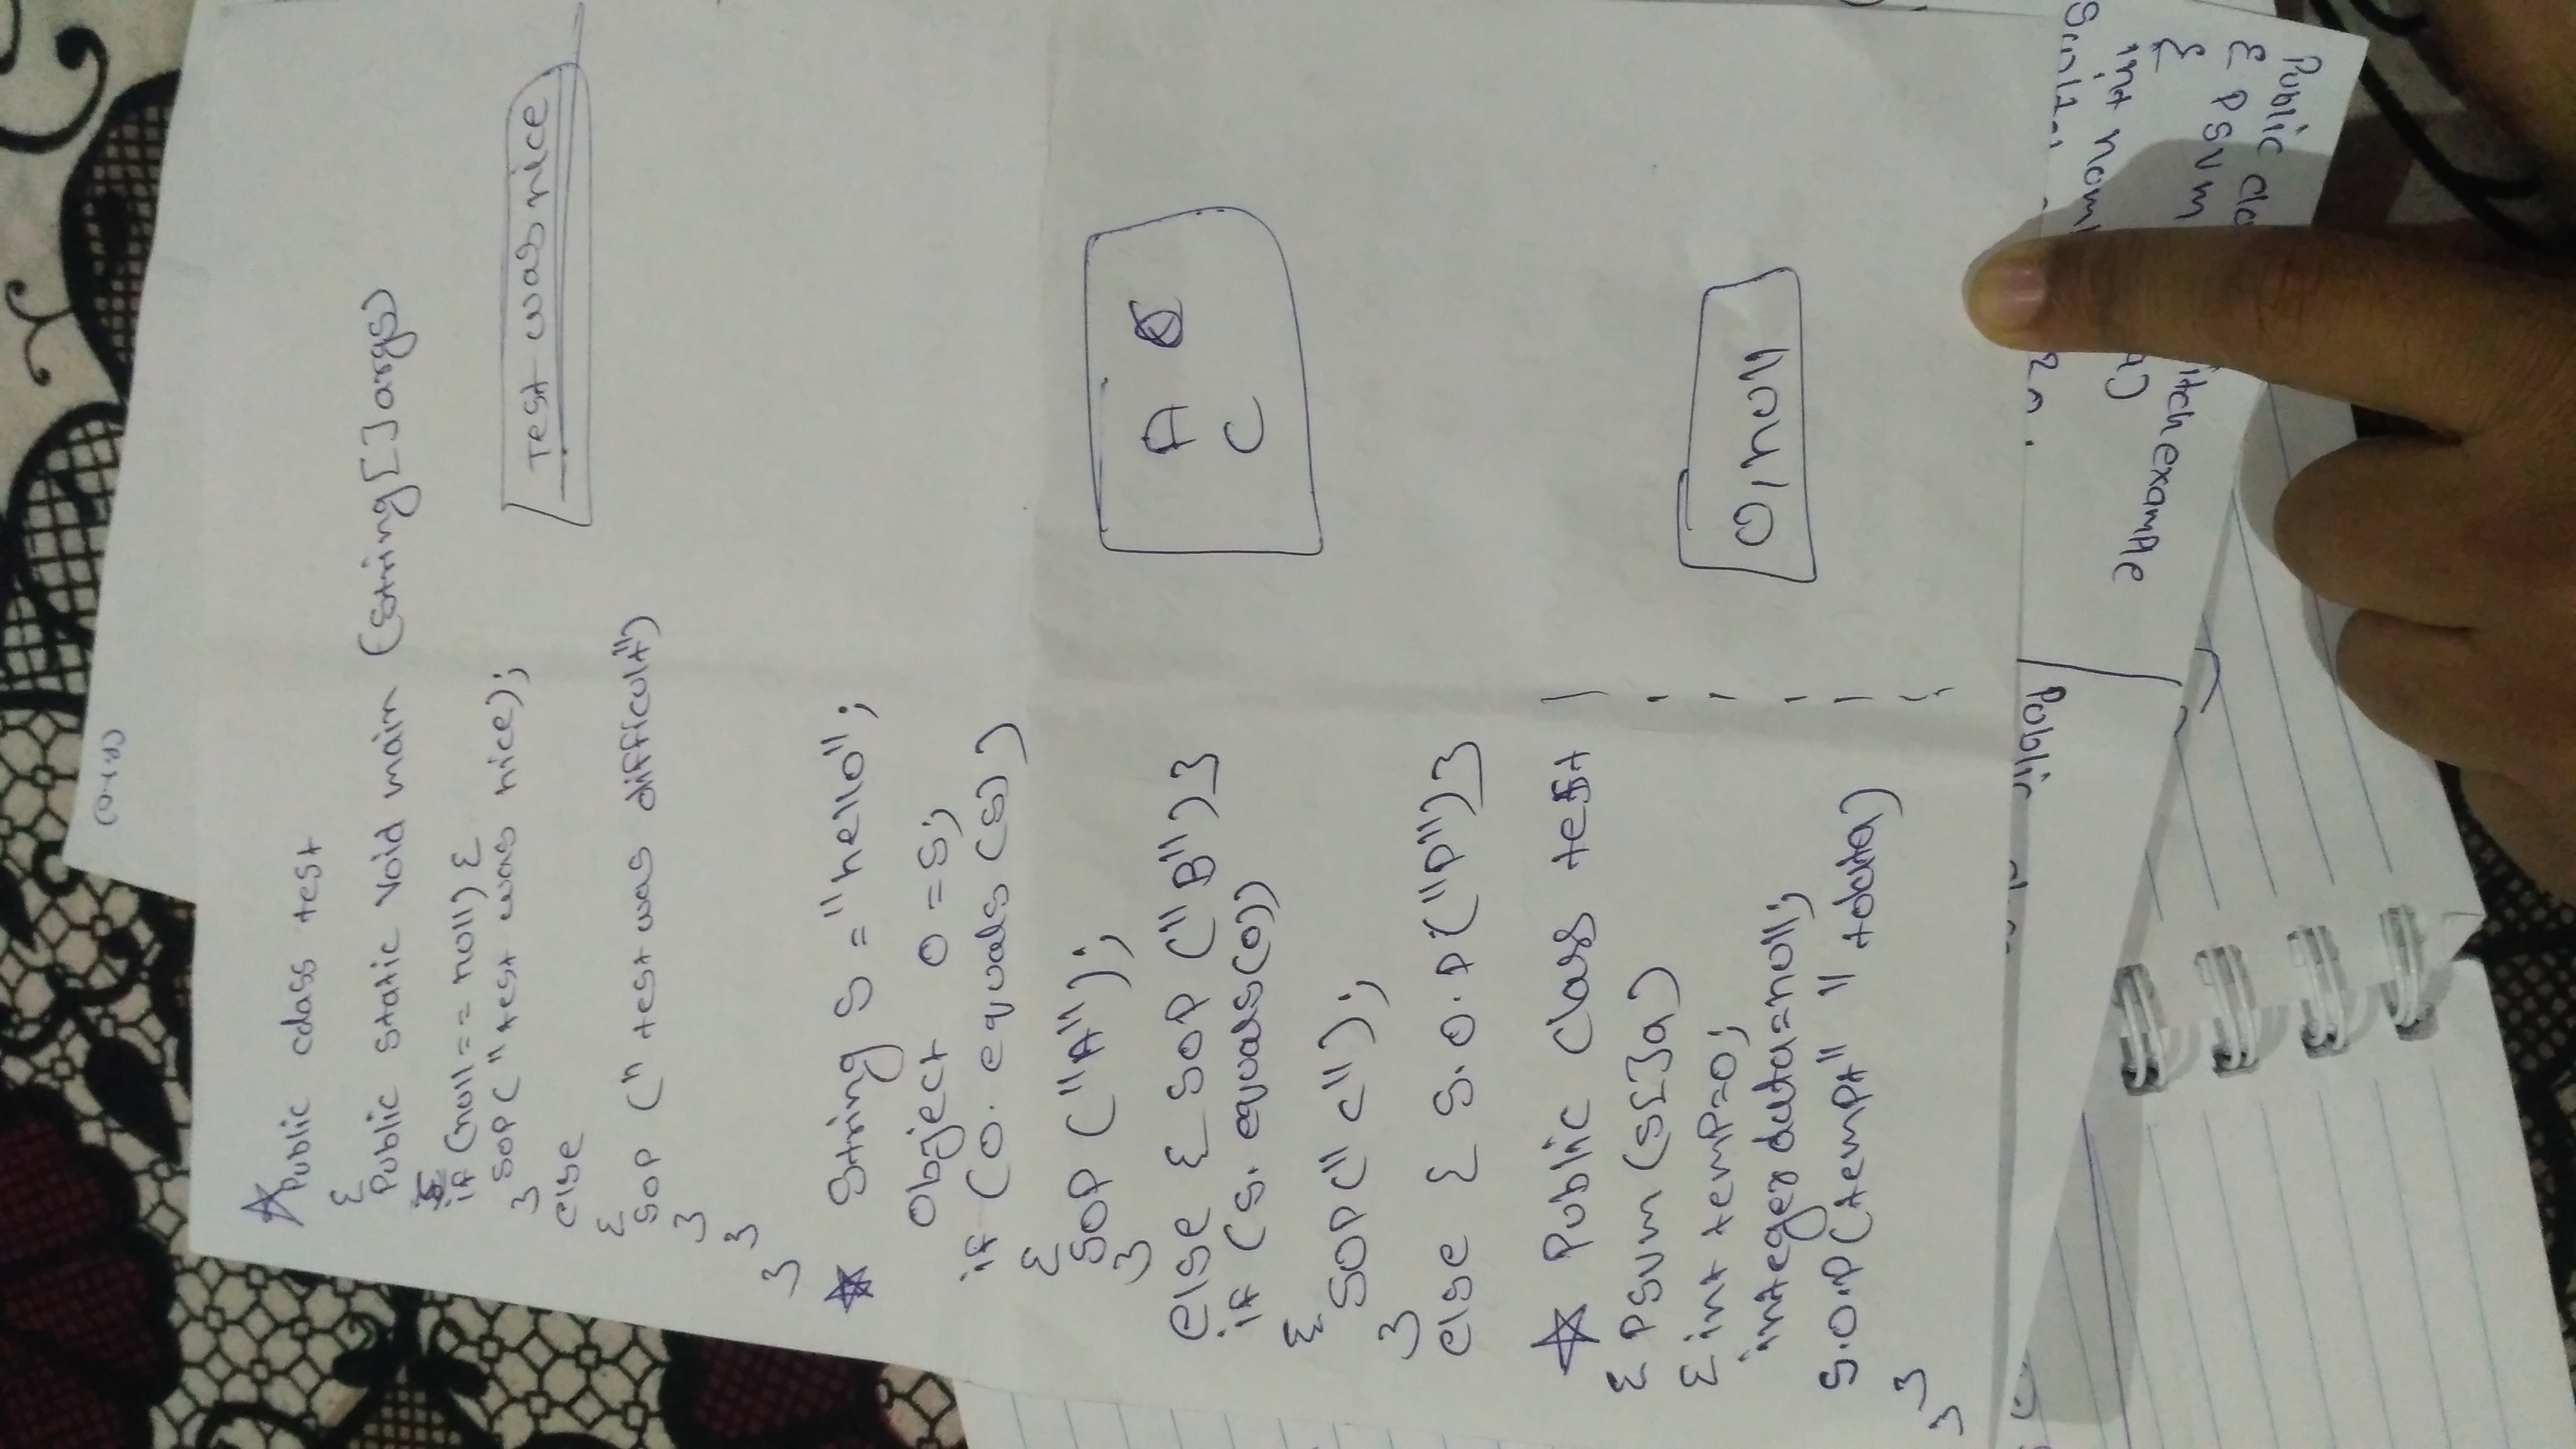 ☆ Public class test
{
Public static void main (String[] args)
if (null == null) {
SOP (" test was nice);
}
else
{
SOP (" test was difficult")
}
}
}
Test was nice
☆ String s = "hello";
Object o = s;
if (o. equals (s))
{
SOP ("A");
}
else { SOP ("B") }
if (s. equals(o))
{
SOP(" c");
}
else { S.O.P("P") }
A
C
☆ Public class test
{ Psvm (s[]a)
{ int temp=0;
integer data=null;
S.O.P(temp+" " +data)
}
}
0, null
Public
{ PSVM
{
int
itch example
Public